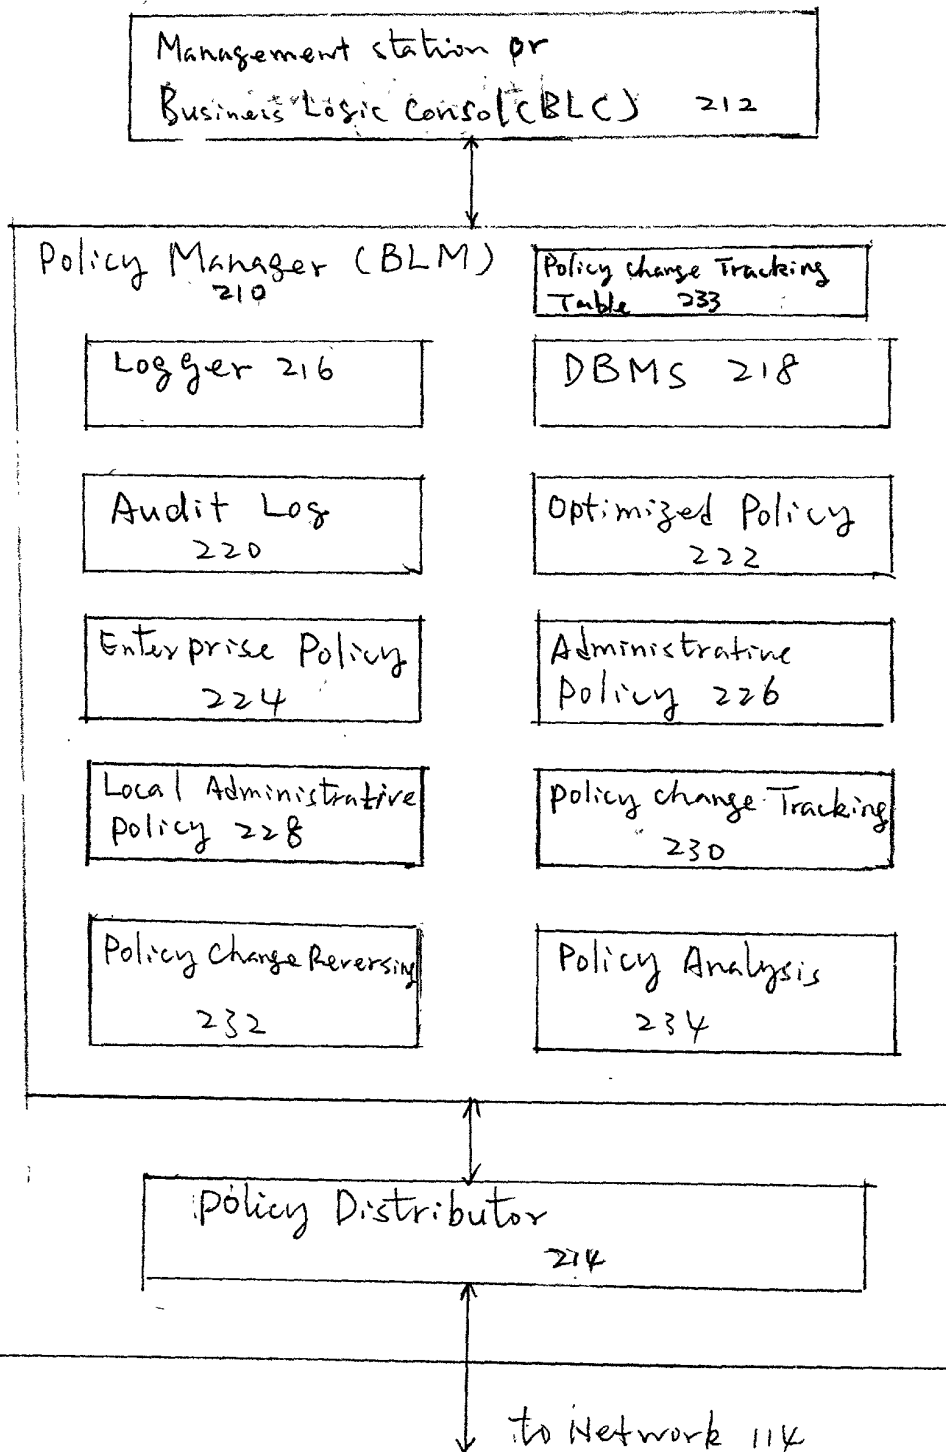 Management station or
Business Logic Consol(BLC) 212
Policy Manager (BLM)
210
Policy change Tracking
Table 233
Logger 216
DBMS 218
Audit Log
220
Optimized Policy
222
Enterprise Policy
224
Administrative
Policy 226
Local Administrative
Policy 228
policy change Tracking
230
Policy Change Reversing
232
Policy Analysis
234
policy Distributor
214
to Network 114